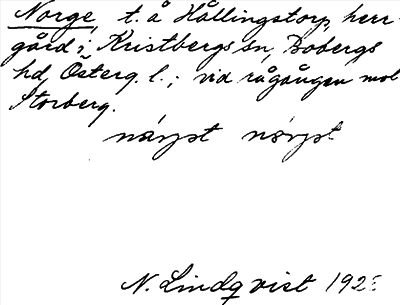 Norge, t. å Hållingstorp, herr-
gård i Kristbergs sn, Bobergs
hd, Österg. l.; vid rågången mot
Storberg.
N. Lindqvist 192